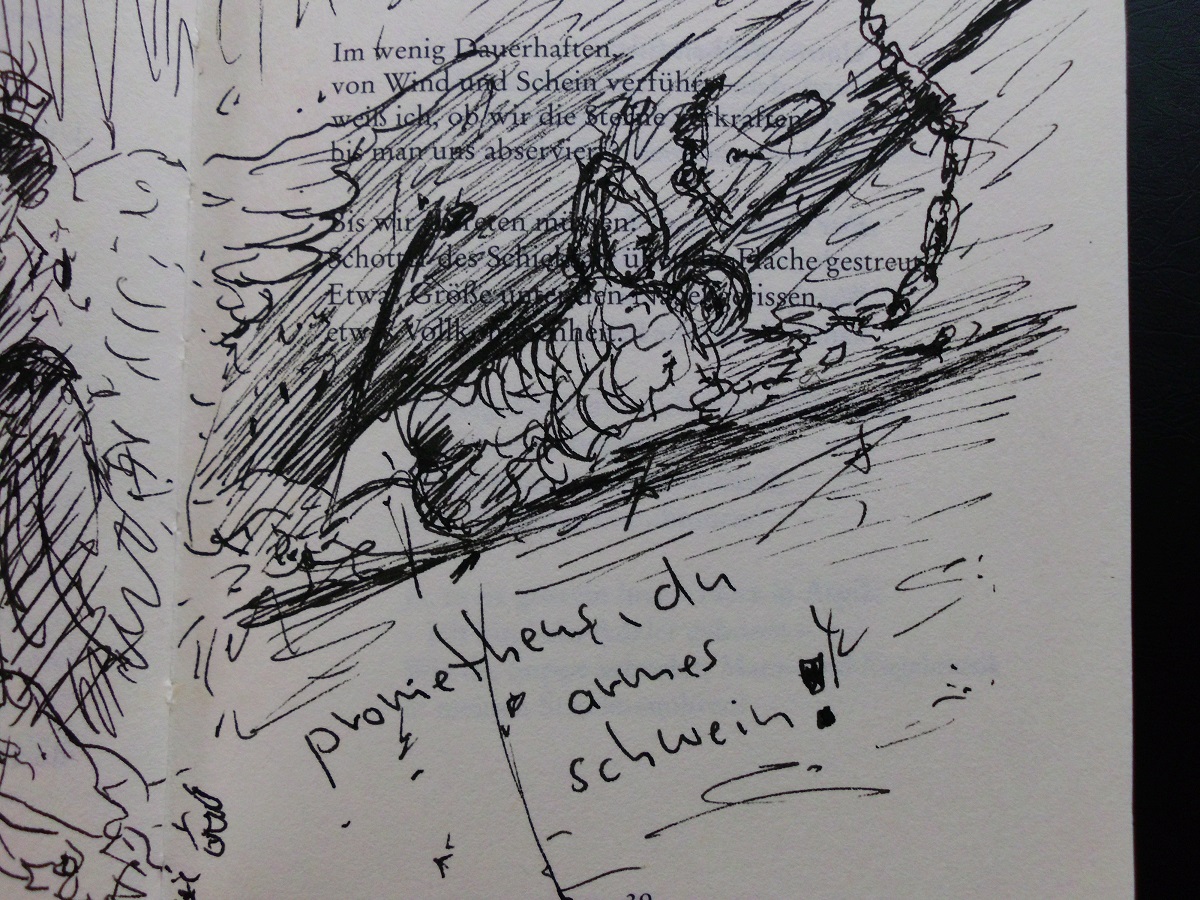 Im wenig Dauerhaften,
von Wind und Schein verführt
weiß ich, ob wir die Sterne verkraften
bis man uns abserviert.
Bis wir abtreten müssen.
Schotter des Schicksals über die Fläche gestreut
Etwas Größe unter den Nägeln gerissen,
etwas Vollkommenheit.
prometheus, du
armes
schwein!